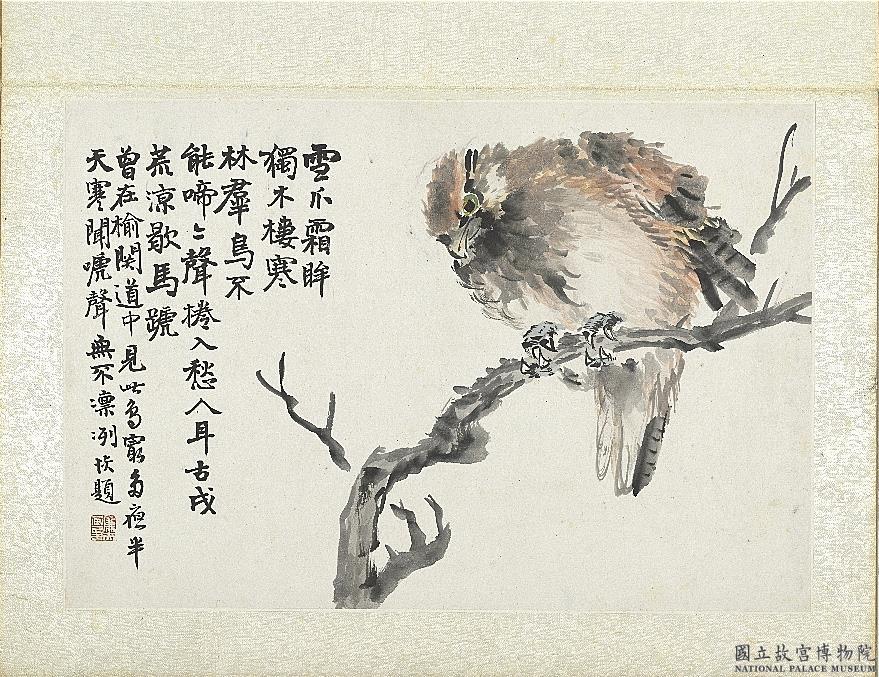 雪爪霜眸
獨木棲寒
林羣鳥不
能啼〻聲捲入愁人耳古戍
荒涼歇馬蹏
曾在榆関道中見此鳥窮夜半
天寒聞唬聲無不凜冽題
國立故宮博物院
NATIONAL PALACE MUSEUM